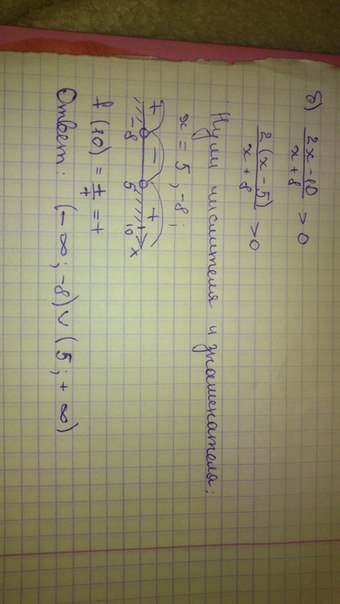 б) (2x - 10)/(x + 8) > 0
(2(x - 5))/(x + 8) > 0
Нули числителя и знаменателя:
x = 5; -8;
+ - +
-8 5 10 x
f(10) = +/+ = +
Ответ: (-∞; -8) ∪ (5; +∞)